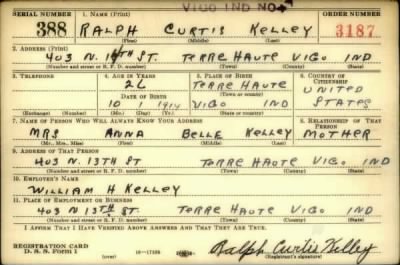 VIGO IND NO 4
SERIAL NUMBER 1. NAME (Print) ORDER NUMBER
388 RALPH CURTIS KELLEY 3187
(First) (Middle) (Last)
2. ADDRESS (Print)
403 N. 13TH ST. TERRE HAUTE VIGO IND
(Number and street or R. F. D. number) (Town) (County) (State)
3. TELEPHONE 4. AGE IN YEARS 5. PLACE OF BIRTH 6. COUNTRY OF CITIZENSHIP
26 TERRE HAUTE UNITED
DATE OF BIRTH (Town or county)
10 1914 VIGO IND STATES
(Exchange) (Number) (Mo.) (Day) (Yr.) (State or country)
7. NAME OF PERSON WHO WILL ALWAYS KNOW YOUR ADDRESS 8. RELATIONSHIP OF THAT PERSON
MRS ANNA BELLE KELLEY MOTHER
(Mr., Mrs., Miss) (First) (Middle) (Last)
9. ADDRESS OF THAT PERSON
403 N. 13TH ST TERRE HAUTE VIGO IND
(Number and street or R. F. D. number) (Town) (County) (State)
10. EMPLOYER'S NAME
WILLIAM H KELLEY
11. PLACE OF EMPLOYMENT OR BUSINESS
403 N 13TH ST. TERRE HAUTE VIGO IND
(Number and street or R. F. D. number) (Town) (County) (State)
I AFFIRM THAT I HAVE VERIFIED ABOVE ANSWERS AND THAT THEY ARE TRUE.
REGISTRATION CARD
D. S. S. Form 1 (over) Ralph Curtis Kelley
(Registrant's signature)